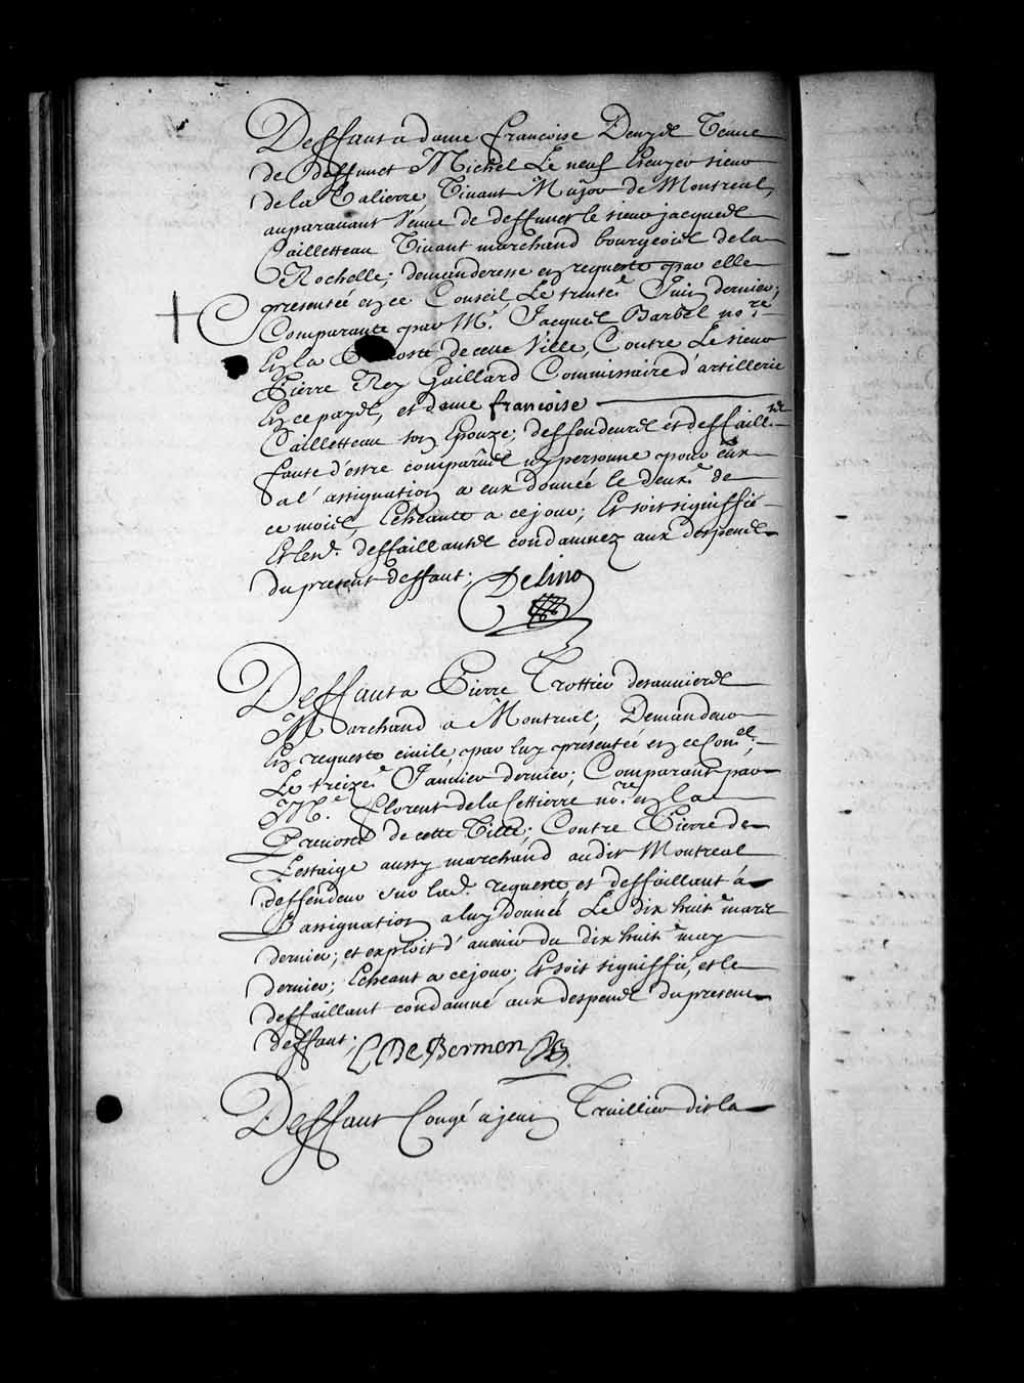 Deffaut a dame francoise Denys Veuve
de deffunct Michel Le neuf Escuyer sieur
de la Valierre, Vivant Major de Montreal,
auparavant veuve de deffunct le sieur jacques
Cailletteau Vivant marchand bourgeois de la
Rochelle; demanderesse en requeste par elle
presentée en ce Conseil Le trente.e Juin dernier;
Comparante par M.e Jacques Barbel no.re
En la Prevosté de cette Ville, Contre Le sieur
Pierre Rey Gaillard Commissaire d'artillerie
En ce pays, et dame francoise
Cailletteau son Epouze; deffendeurs et deffaill.ts
faute d'estre comparus ny personne pour eux
a l'assignation a eux donnée le deux.e de
ce mois, Echeante a ce jour; Et soit signiffié
Et lesd. deffaillants condamnez aux despens
du present deffaut;
Delino
Deffaut a Pierre Trottier desauniers
Marchand a Montreal; Demandeur
En requeste civile, par luy presentée en ce Con.el;
Le treize.e Janvier dernier; Comparant par
M.e Florent de la Cettierre no.re en la
Prevosté de cette Ville; Contre Pierre de
Lestaige aussy marchand audit Montreal
deffendeur sur lad. requeste, et deffaillant a
L'assignation a luy donnée Le dix huit.e mars
dernier; et exploit d'avenir du dix huit.e may
dernier; Echeant a ce jour; Et soit signiffié, et le
deffaillant condamné aux despens du present
deffaut;
C De Bermen
Deffaut Congé a jean Truillier dit la